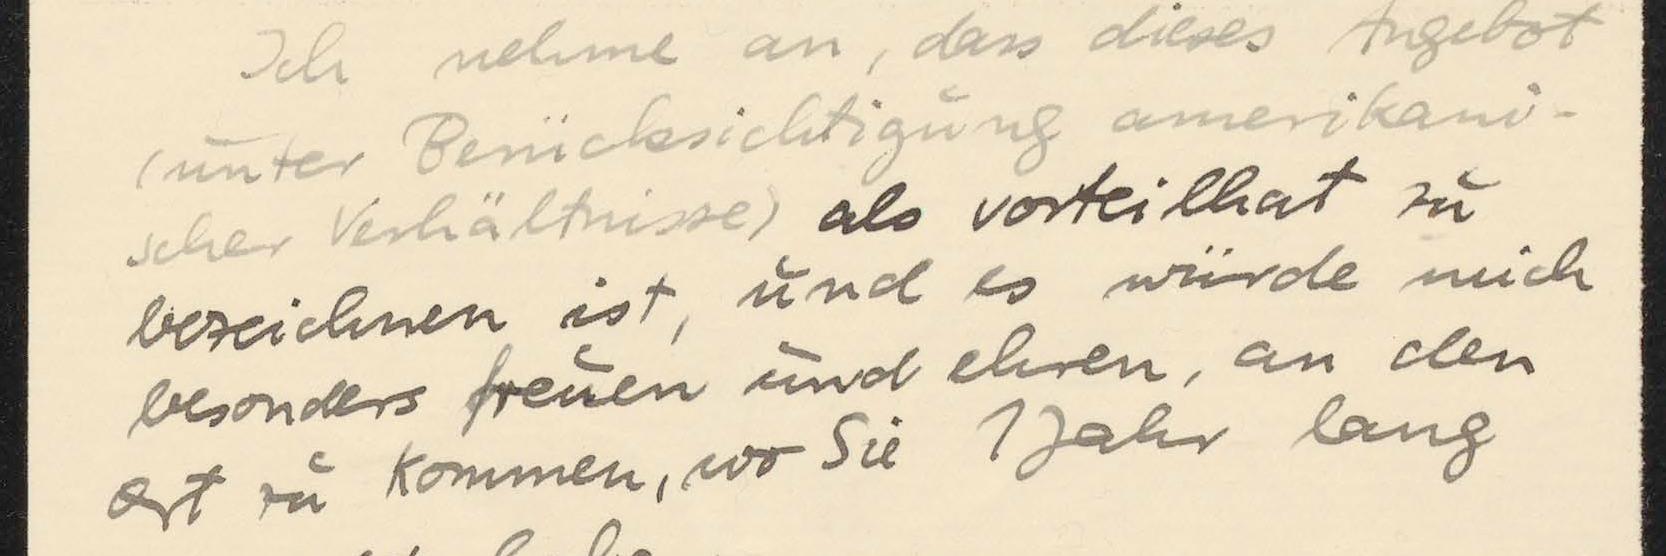 Ich nehme an, dass dieses Angebot
(unter Berücksichtigung amerikani-
scher Verhältnisse) als vorteilhat zu
bezeichnen ist, und es würde mich
besonders freuen und ehren, an den
Ort zu kommen, wo Sie 1 Jahr lang